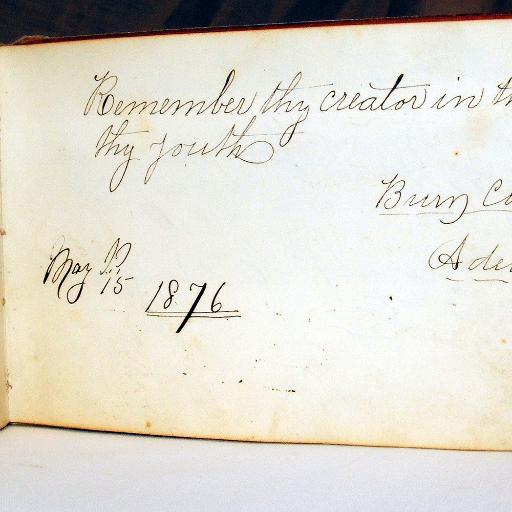 Remember thy creator in th
thy youth
Burn C
Ade
May 15
1876